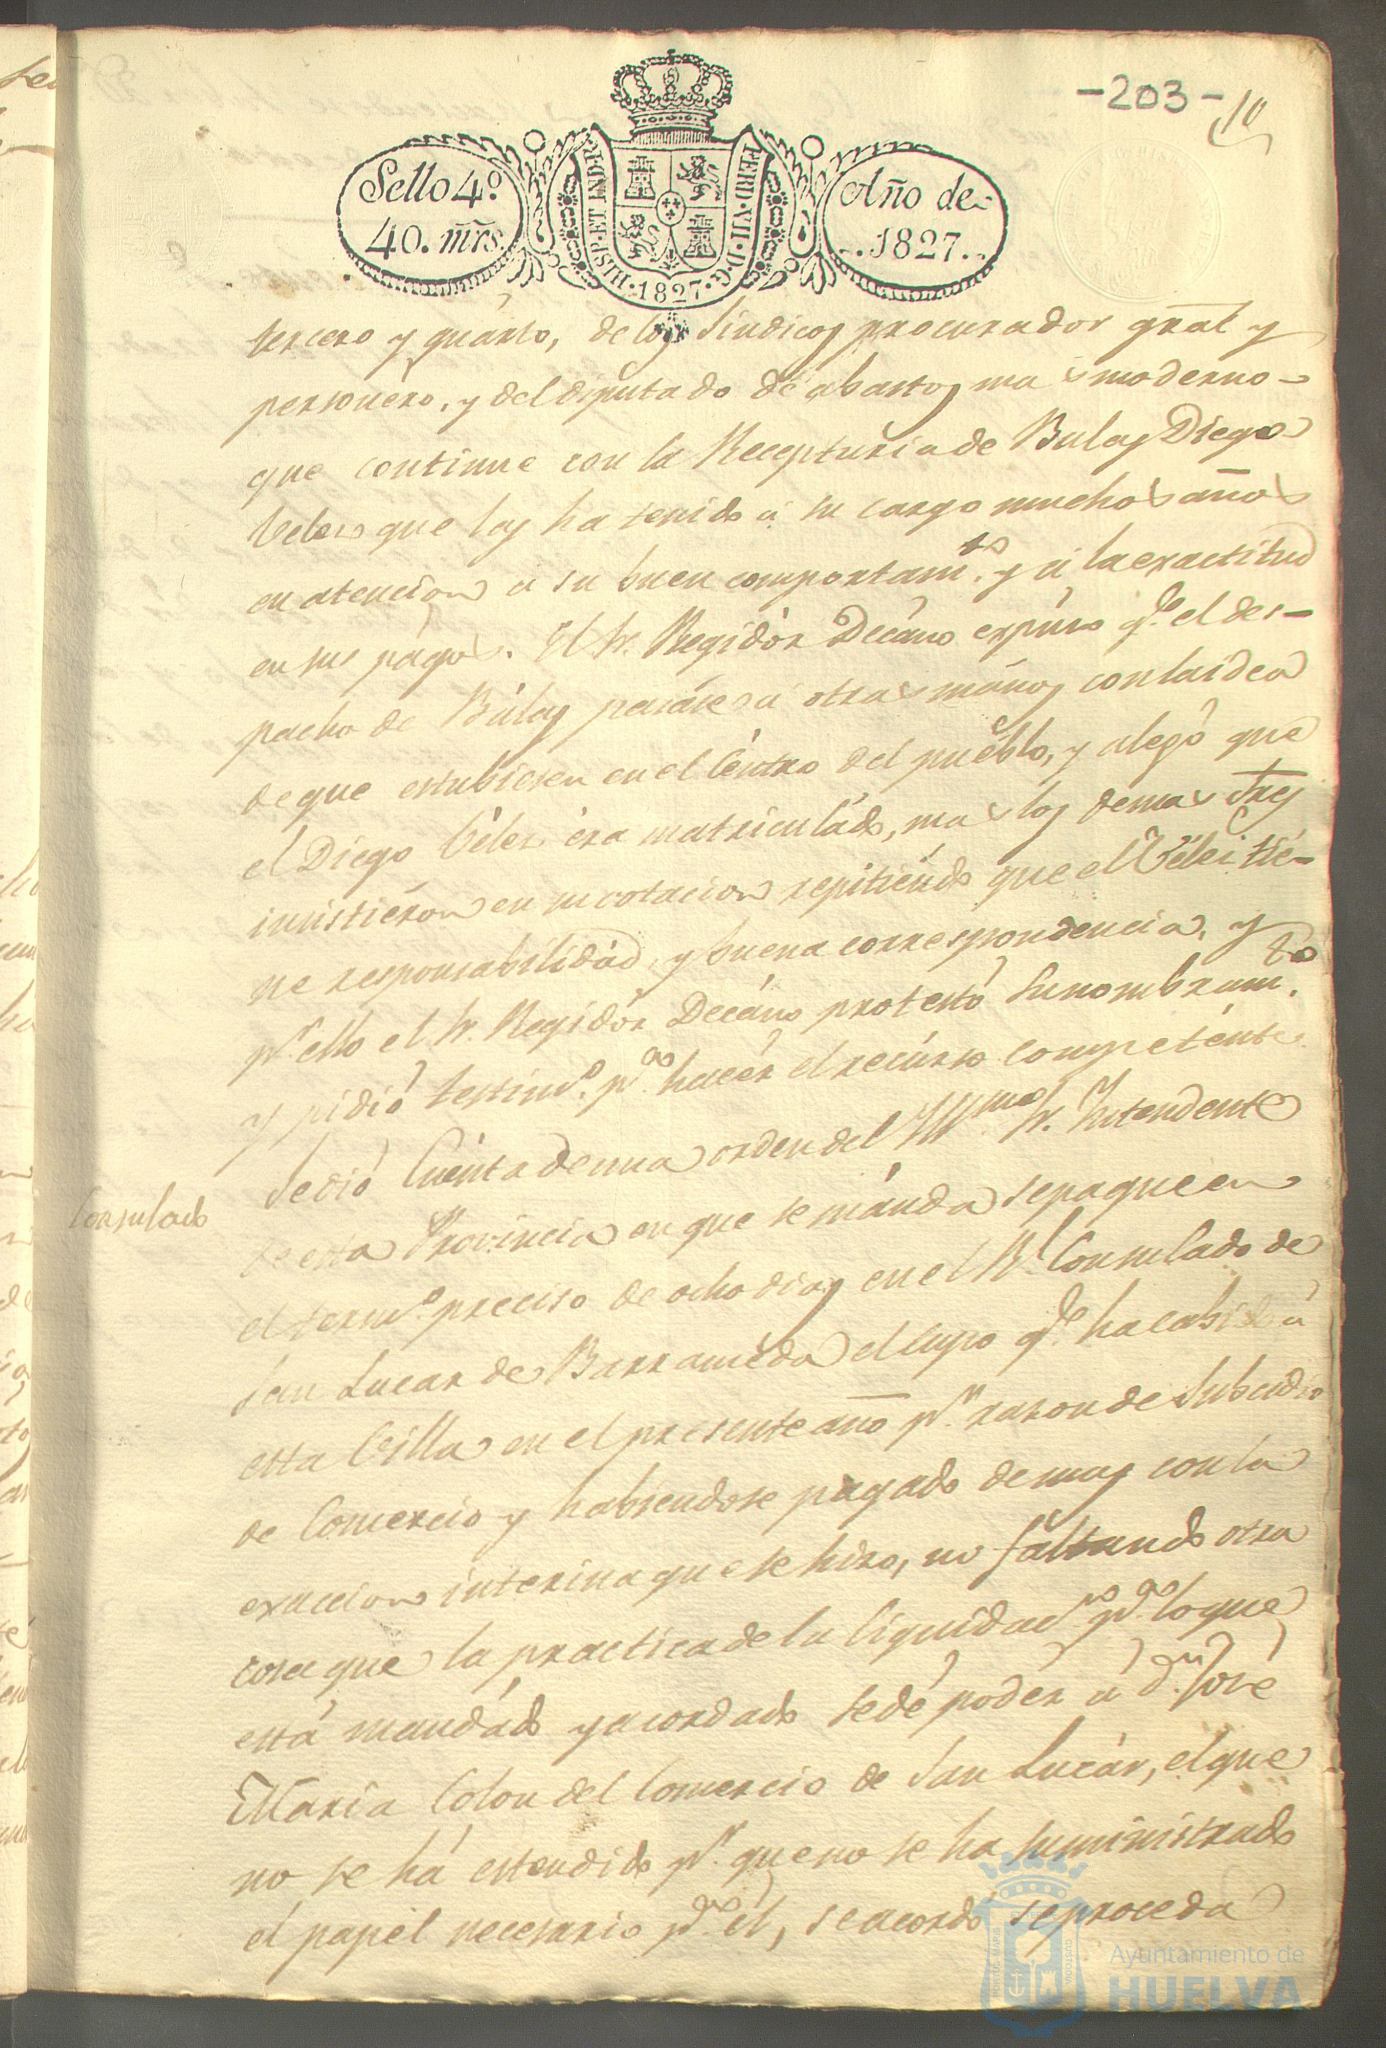 -203-
10
Sello 4º
40. mrs.
HISP. ET IND. R.
FERD. VII. D. G.
1827
Año de
1827.
tercero y quárto, de los Síndicos procurador gral y
personero, y del diputado de abastos mas moderno
que continue con la Recepturia de Bulas Diego
Velez que las ha tenido á su cargo muchos años
en atencion á su buen comportamto. y á la exactitud
en sus págos. El Sr. Regidór Decáno expúso qe. el des-
pacho de Búlas pasáse á otras mános con la idea
de que estubiesen en el Céntro del pueblo, y alegó que
el Diego Vélez éra matriculádo, mas los demas Sres
insistiéron en su votacion repitiéndo que el Vélez tié-
ne responsabilidád, y buena correspondencia, y
pr. ello el Sr. Regidór Decáno protestó su nombramto.
y pidió testimo. pa. hacér el recúrso competénte.
Consulado
Se dió Cuénta de una orden del Yllmo. Sr. Yntendente
de esta Provincia en que se mánda se pague en
el termo. preciso de ocho dias en el Rl. Consulado de
San Lucar de Barraméda el cupo qe. ha cabido á
esta Villa en el presente año pr. razon de Subcidio
de Comercio y habiendose pagado de mas con la
exaccion interina que se hizo, no faltando otra
cosa que la practica de la liquidacn. pa. lo que
está mandádo y acordado se dé podér á Dn. José
María Colon del Comercio de San Lucár, el que
no se há estendido pr. que no se ha suministrado
el papél necesario pa. él, se acordó se proceda
Ayuntamiento de
HUELVA